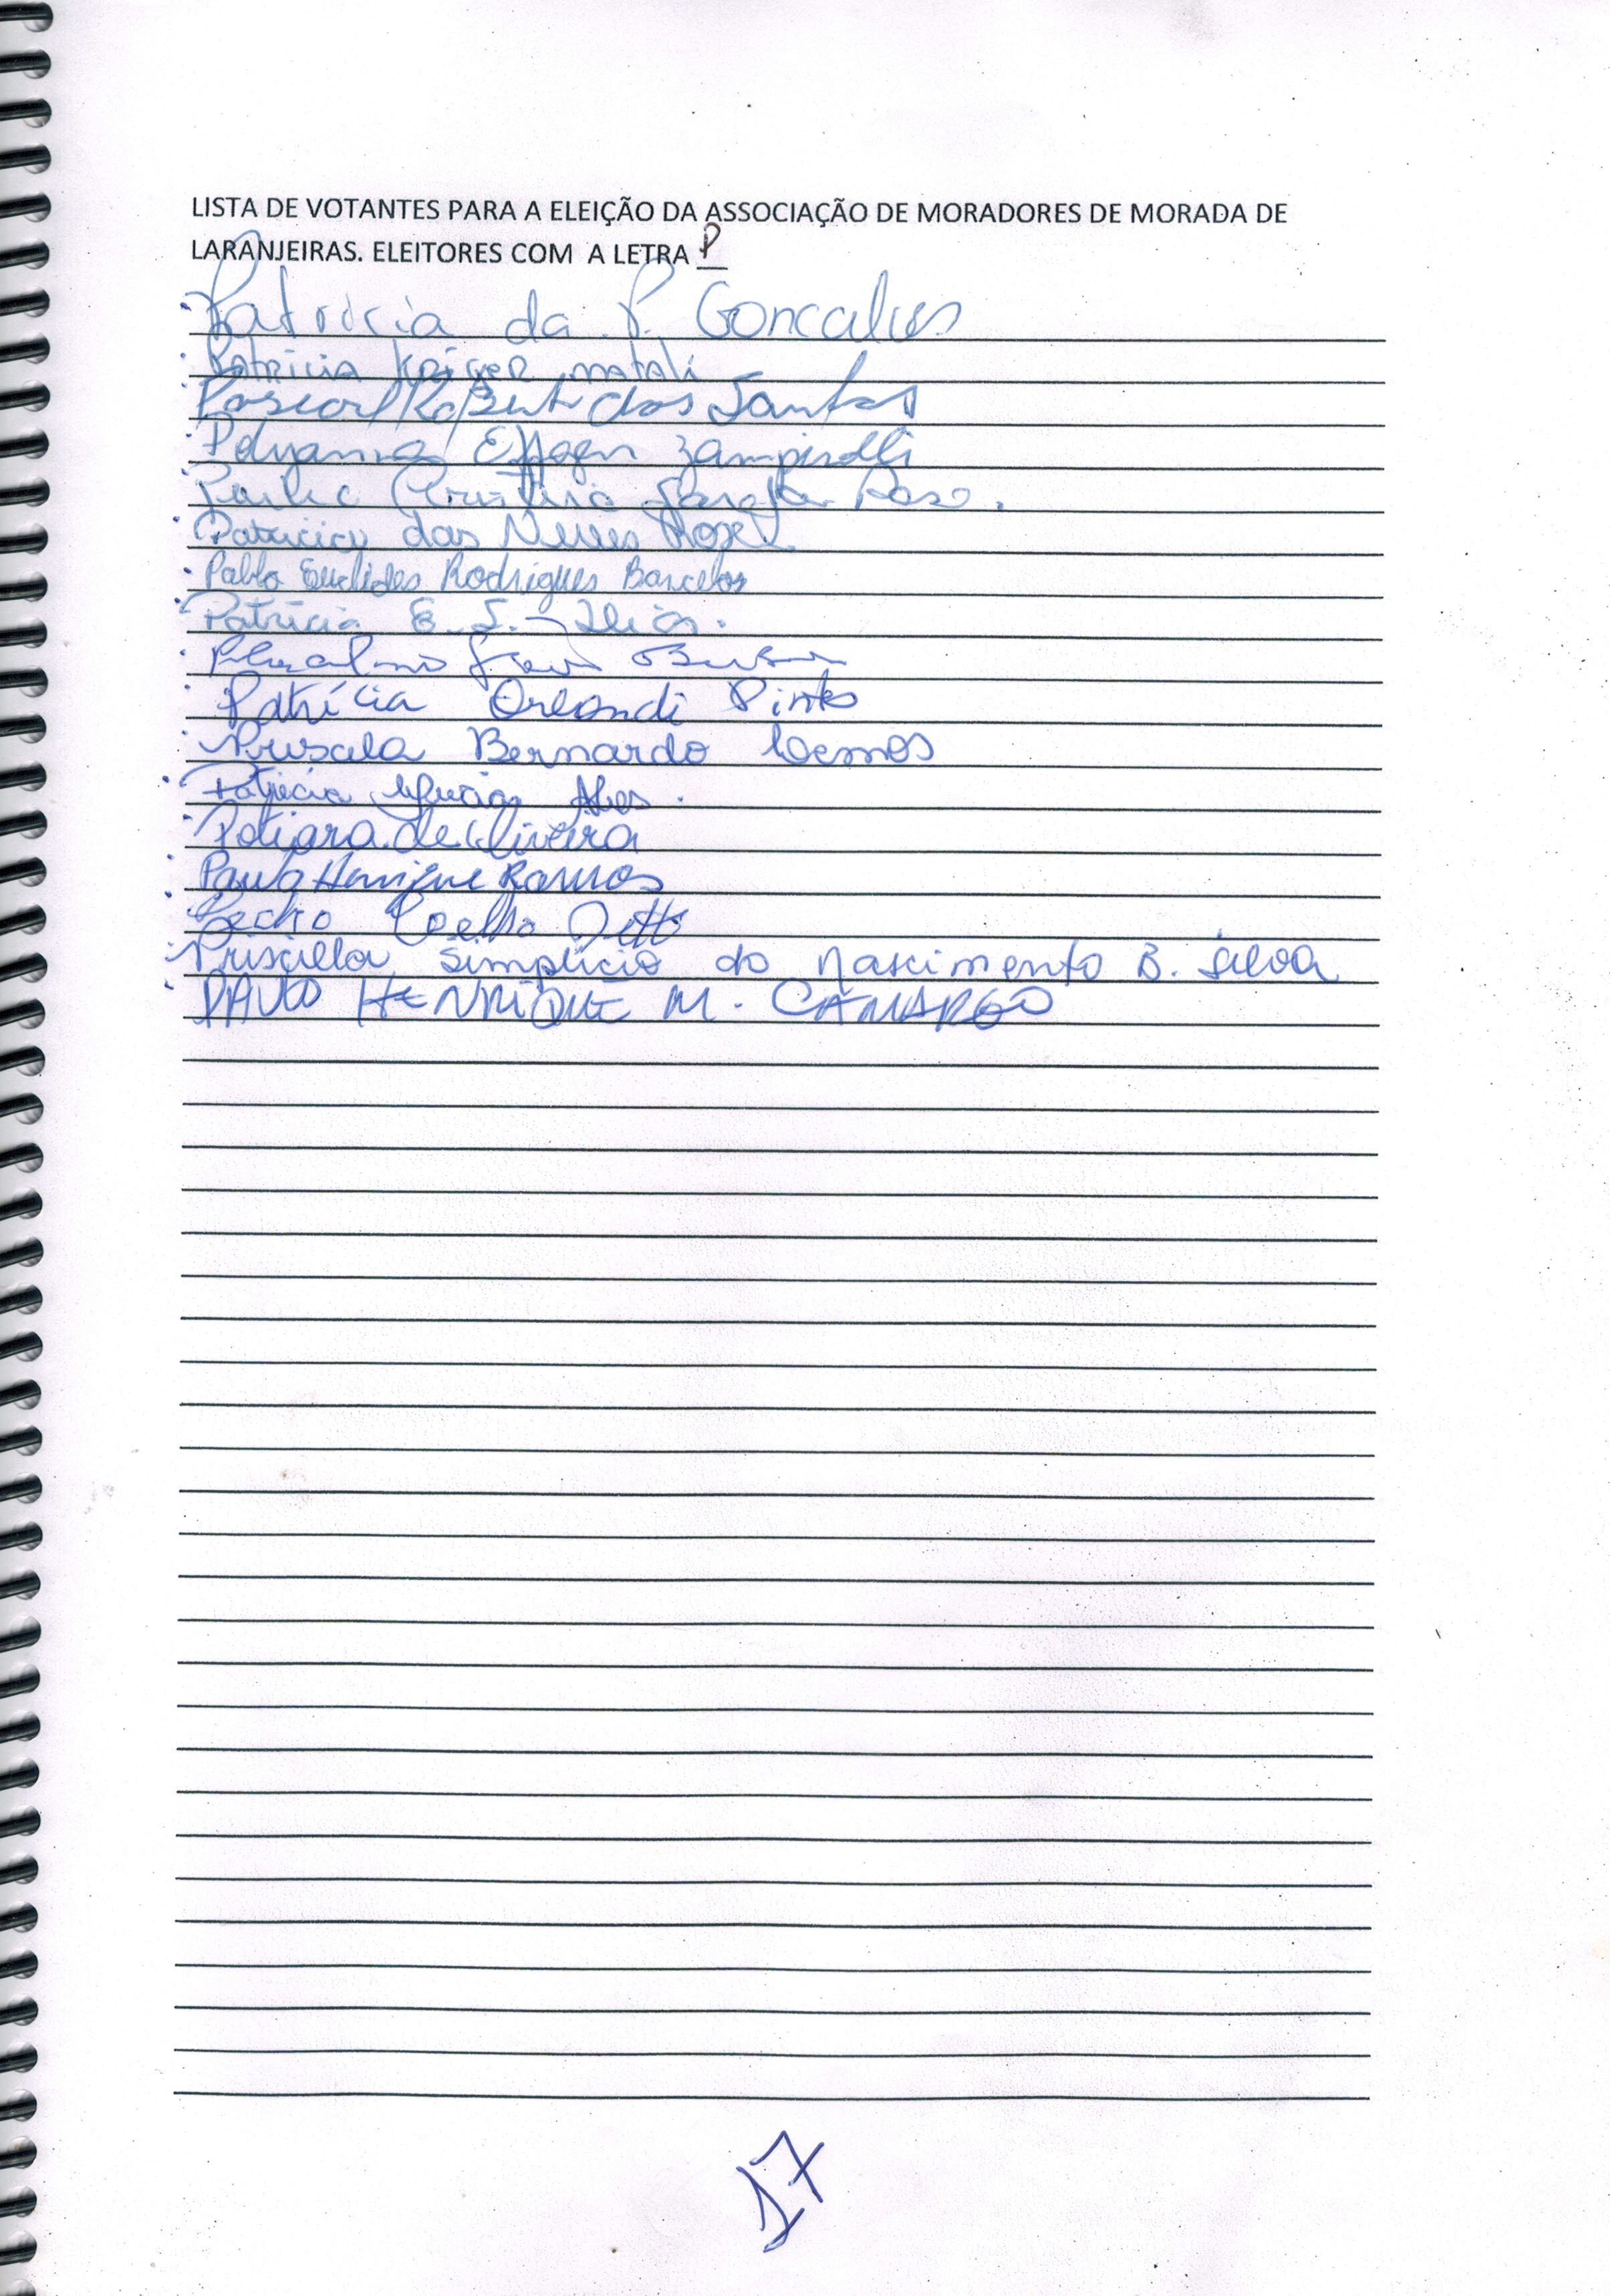 LISTA DE VOTANTES PARA A ELEIÇÃO DA ASSOCIAÇÃO DE MORADORES DE MORADA DE
LARANJEIRAS. ELEITORES COM A LETRA P
Patricia da P. Goncalves
Patricia Kriger Natali
dos Santos
Polyanna Effgen Zampirolli
Cristina Rosa.
Patricia das Neves
Pablo Euclides Rodrigues Barcelos
Patrícia E. S.
Patrícia Orlandi Pinto
Priscila Bernardo Lemos
Patrícia Alves.
Potiara de Oliveira
Paulo Henrique Ramos
Pedro Coelho Netto
Priscilla Simplicio do Nascimento B. Silva
PAULO HENRIQUE M. CAMARGO
17